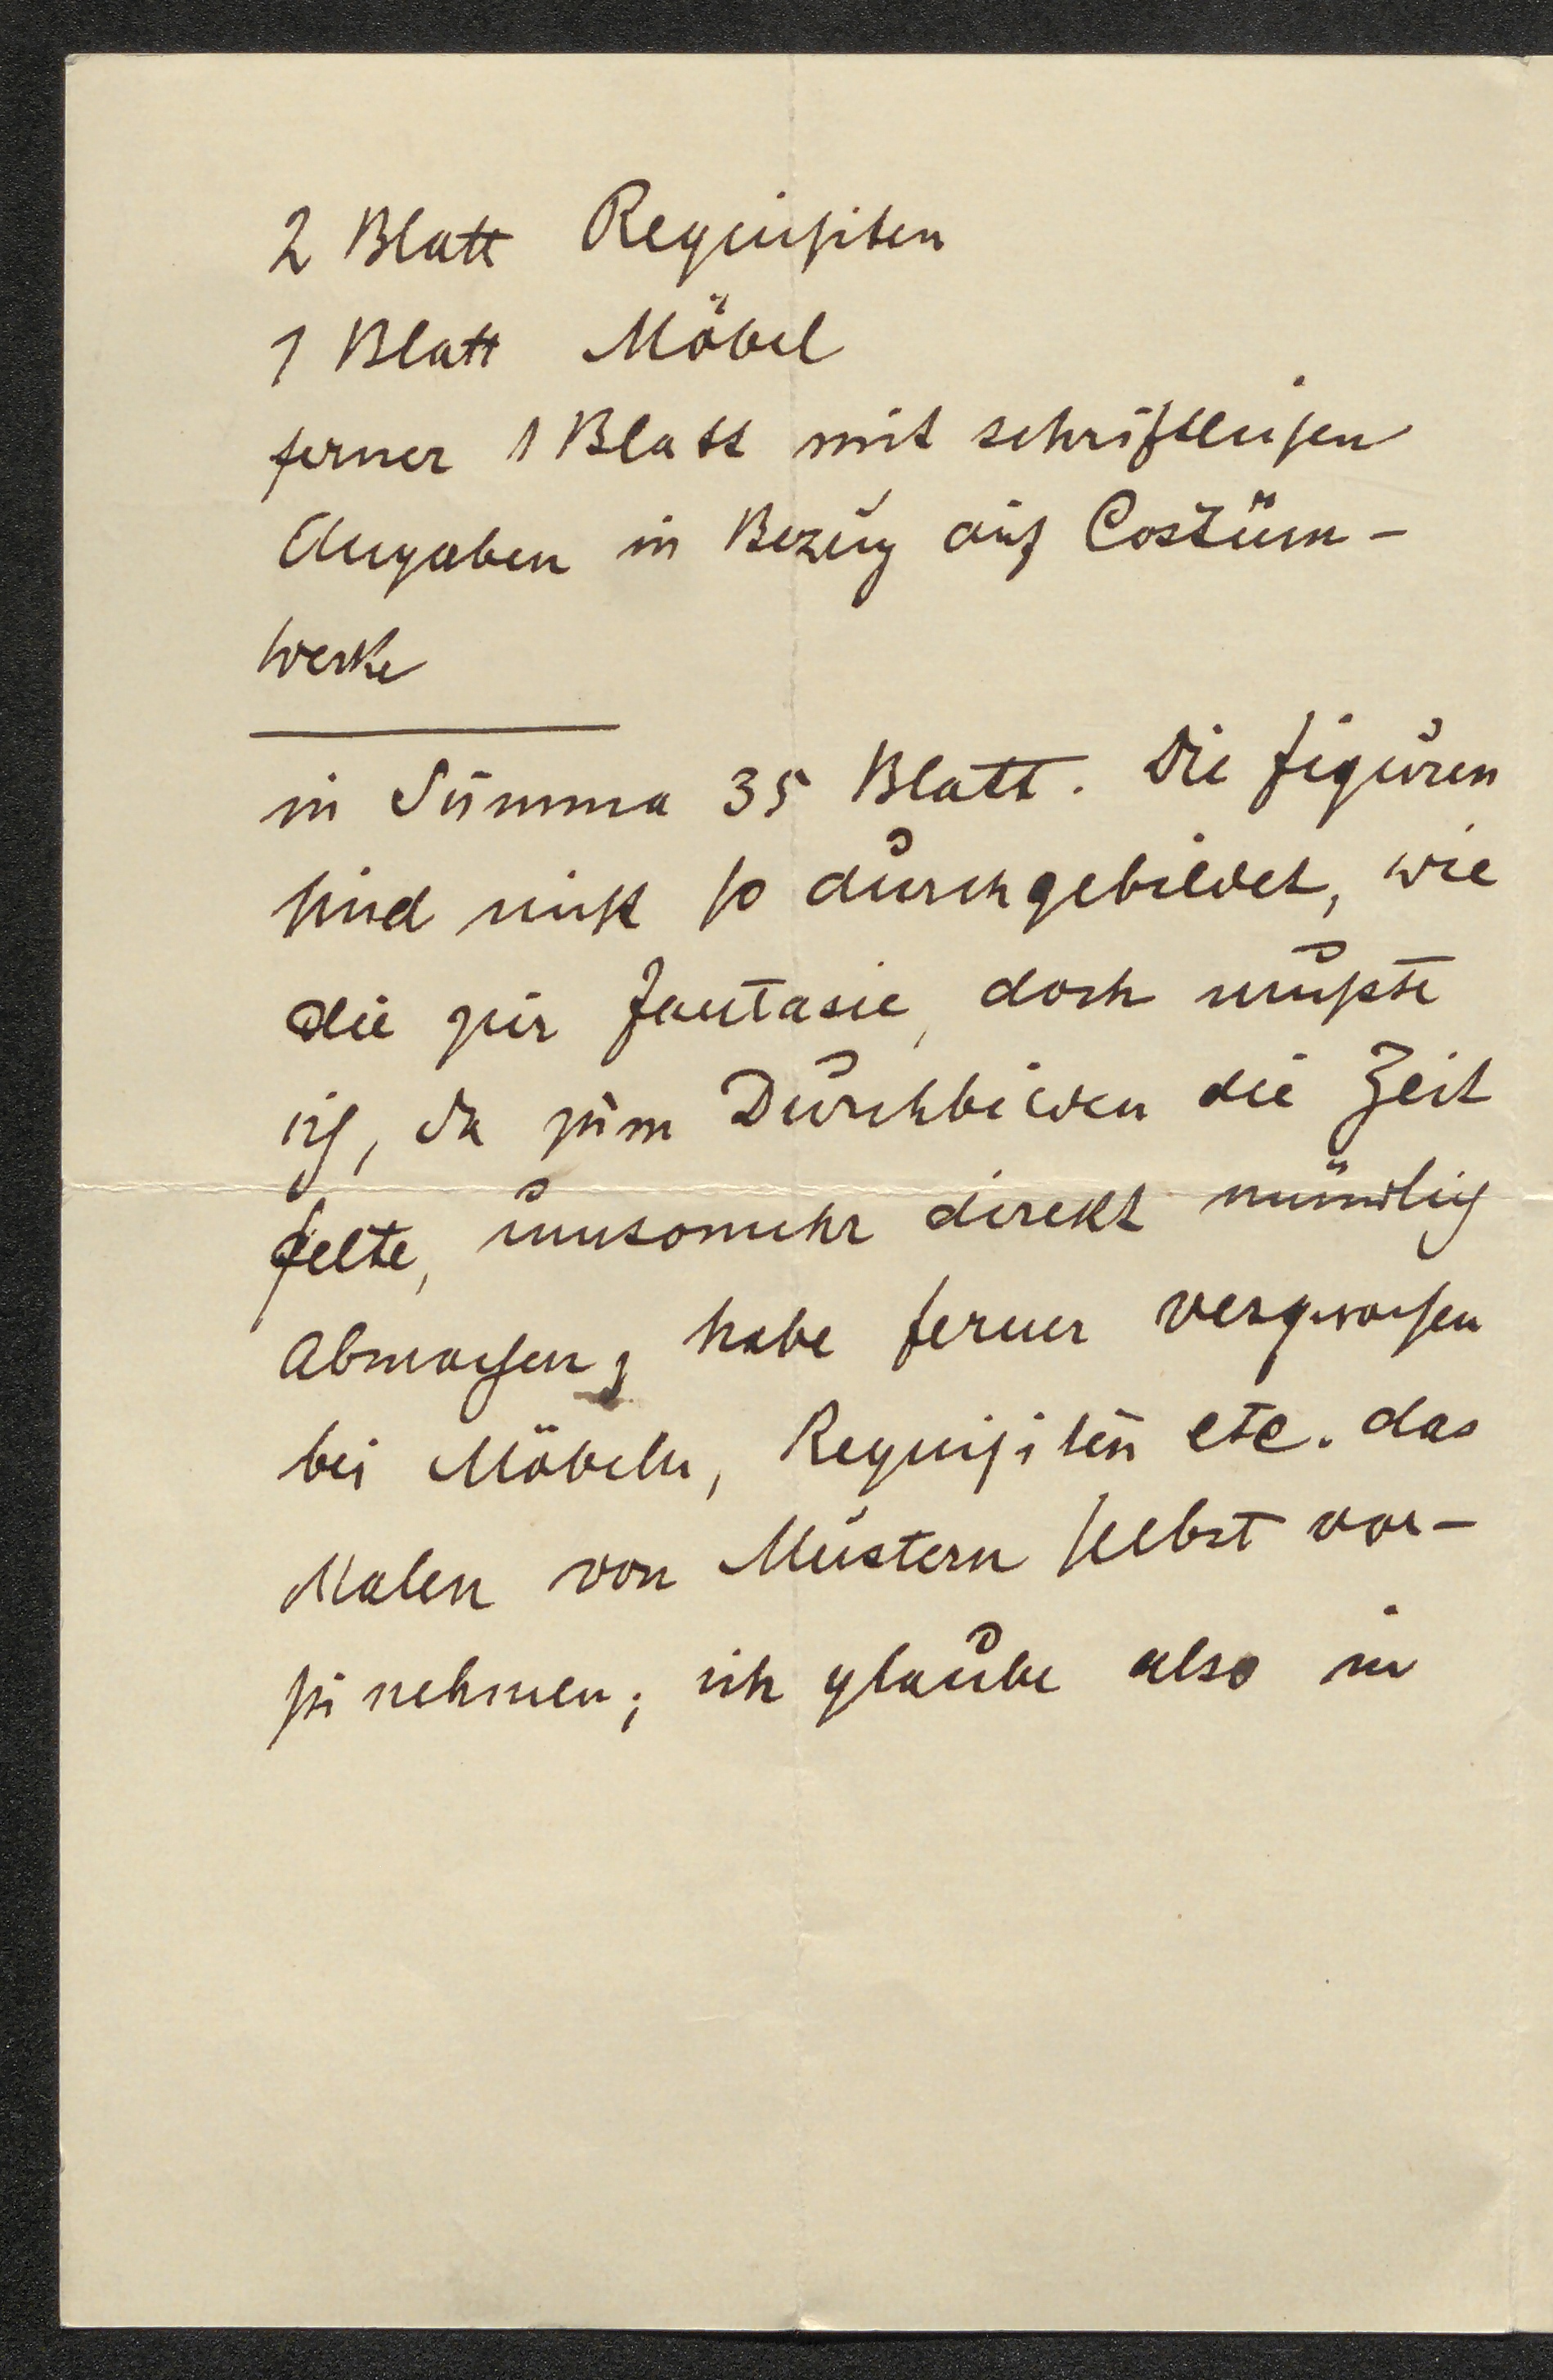 2 Blatt Requisiten
1 Blatt Möbel
ferner 1 Blatt mit schriftlichen
Angaben in Bezug auf Costüm-
werke
in Summa 35 Blatt. Die Figuren
sind nicht so durchgebildet, wie
die zur Fantasie, doch mußte
ich, da zum Durchbilden die Zeit
felte, umsomehr direkt mündlich
abmachen, habe ferner versprochen
bei Möbeln, Requisiten etc. das
Malen von Mustern selbst vor-
zunehmen; ich glaube also in